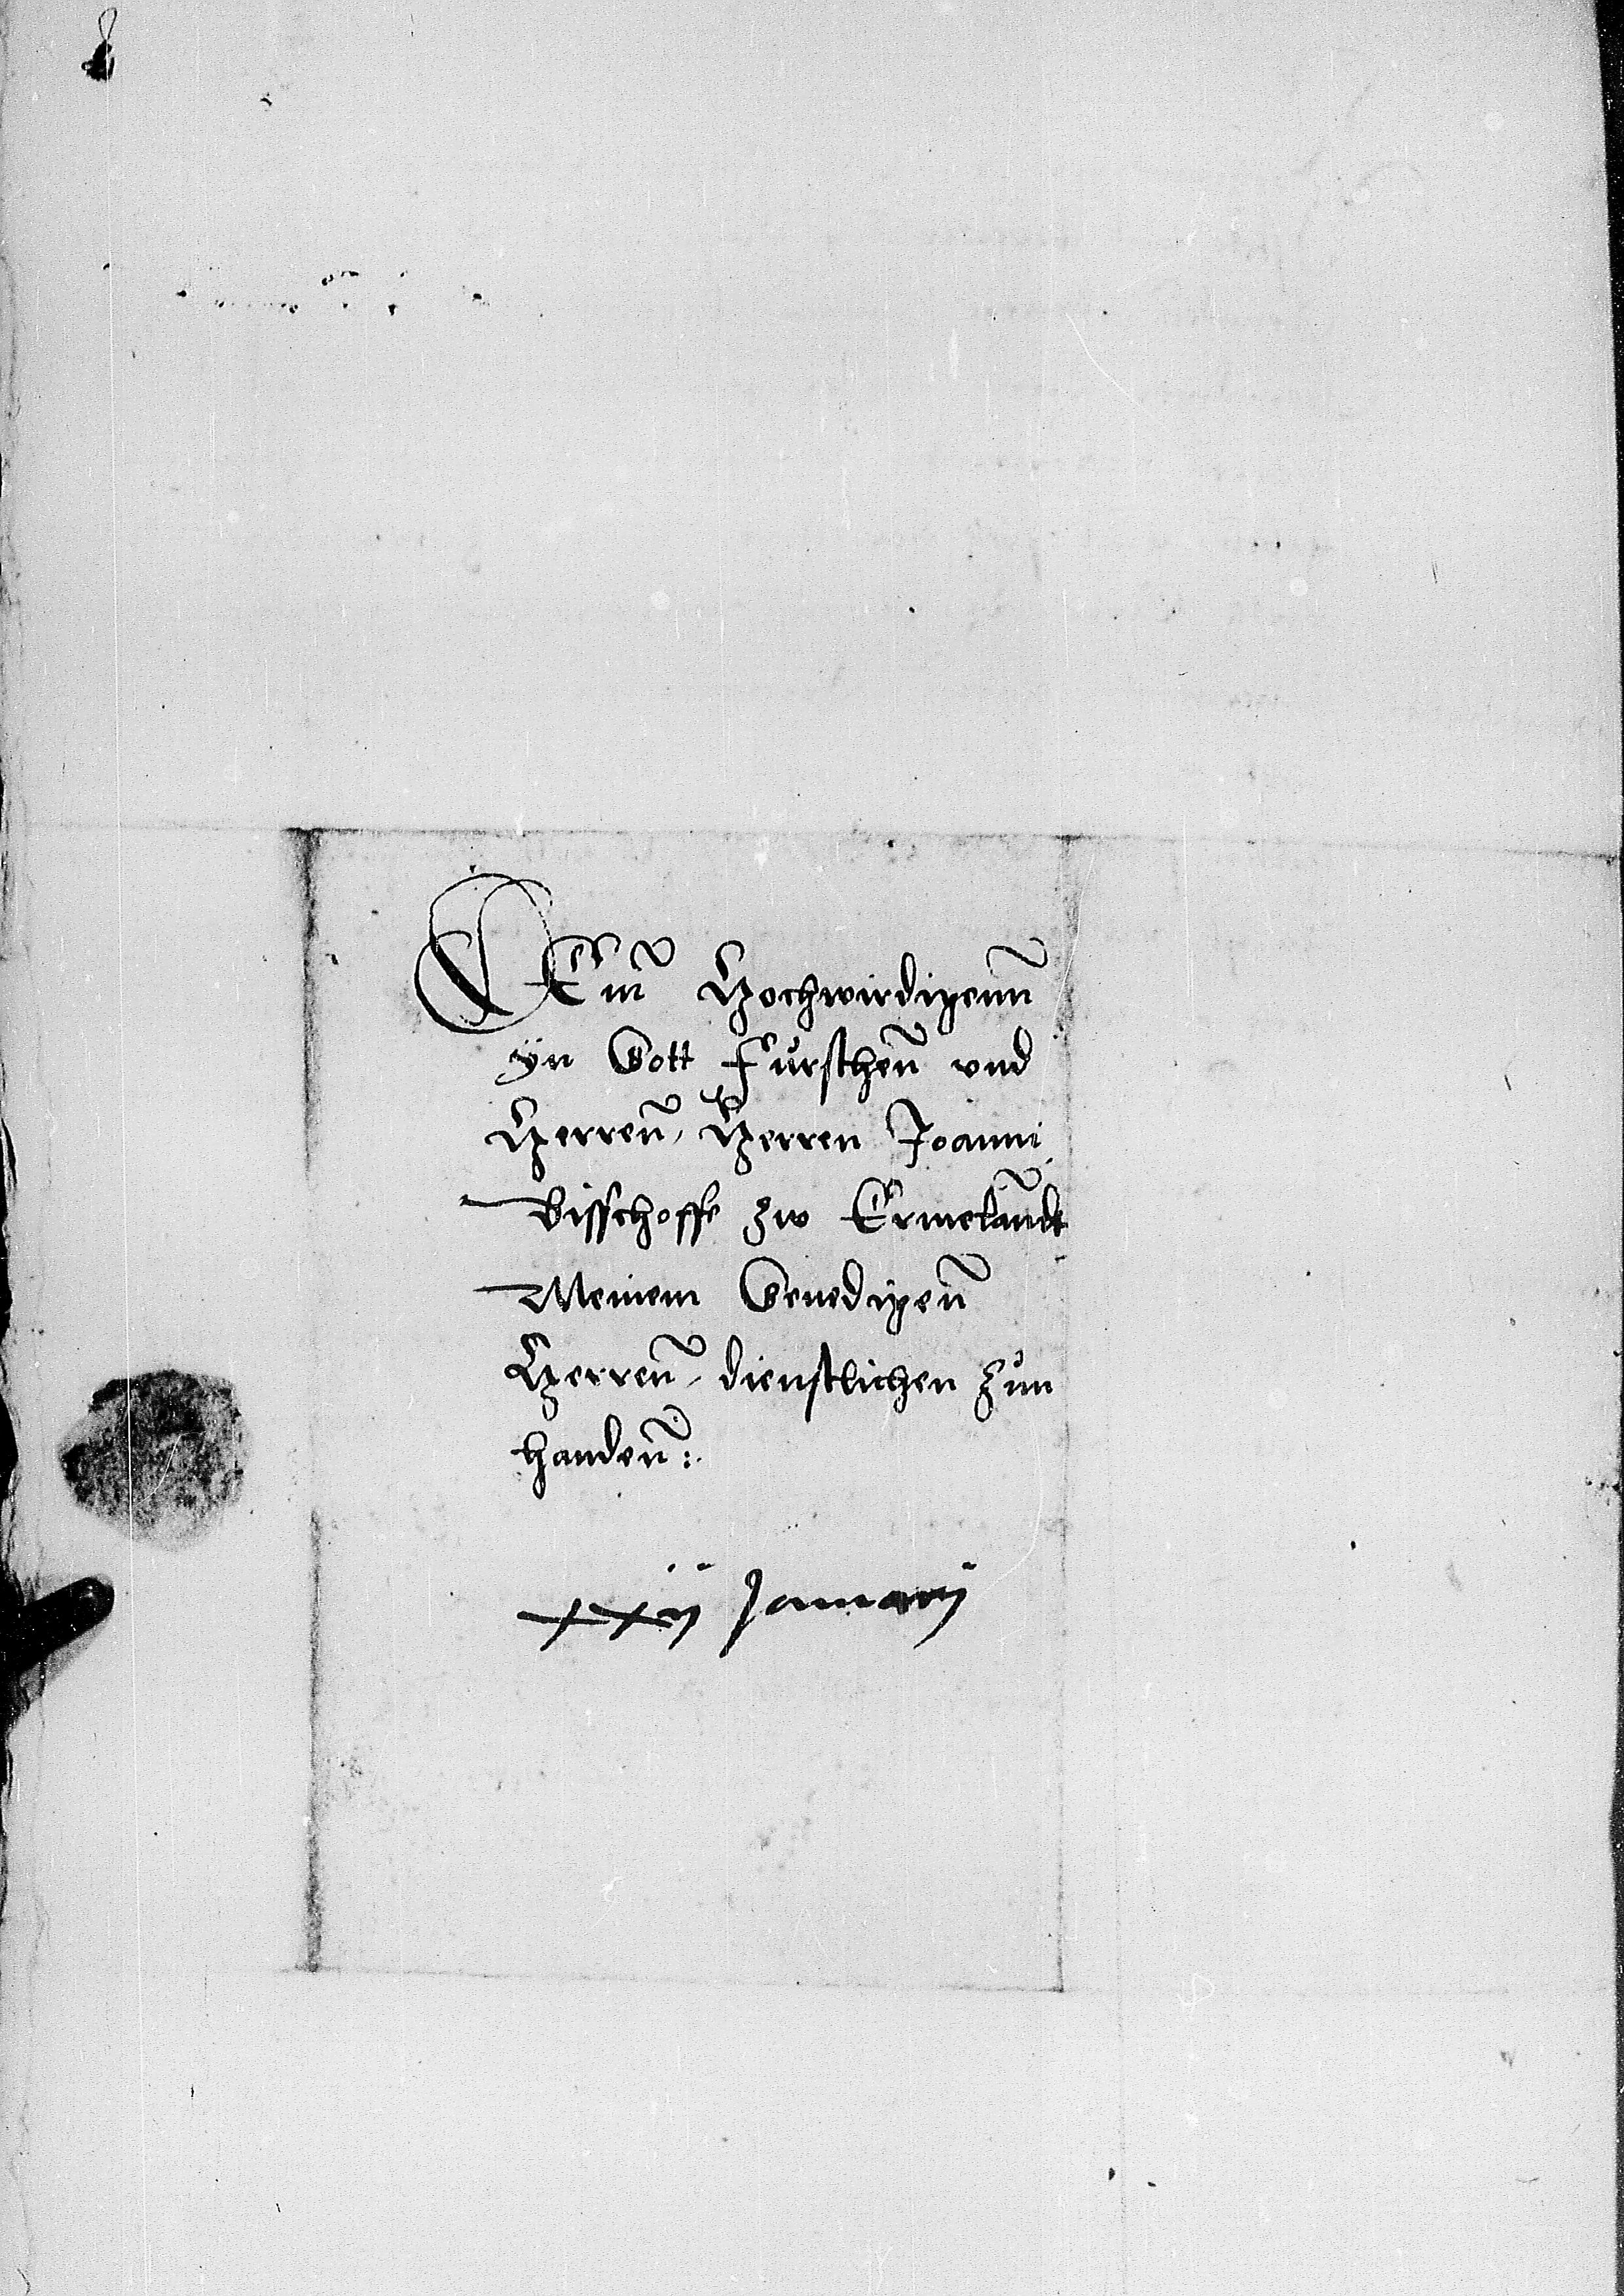 DEm Hochwirdigenn
yn Gott Furschen̄ vnd
Herren̄, Herren Joanni
Bisschoffe zw Ermelandt
Meinem Genedigen̄
Herren̄, dienstlichen zun
handen̄:
xxij Januarij